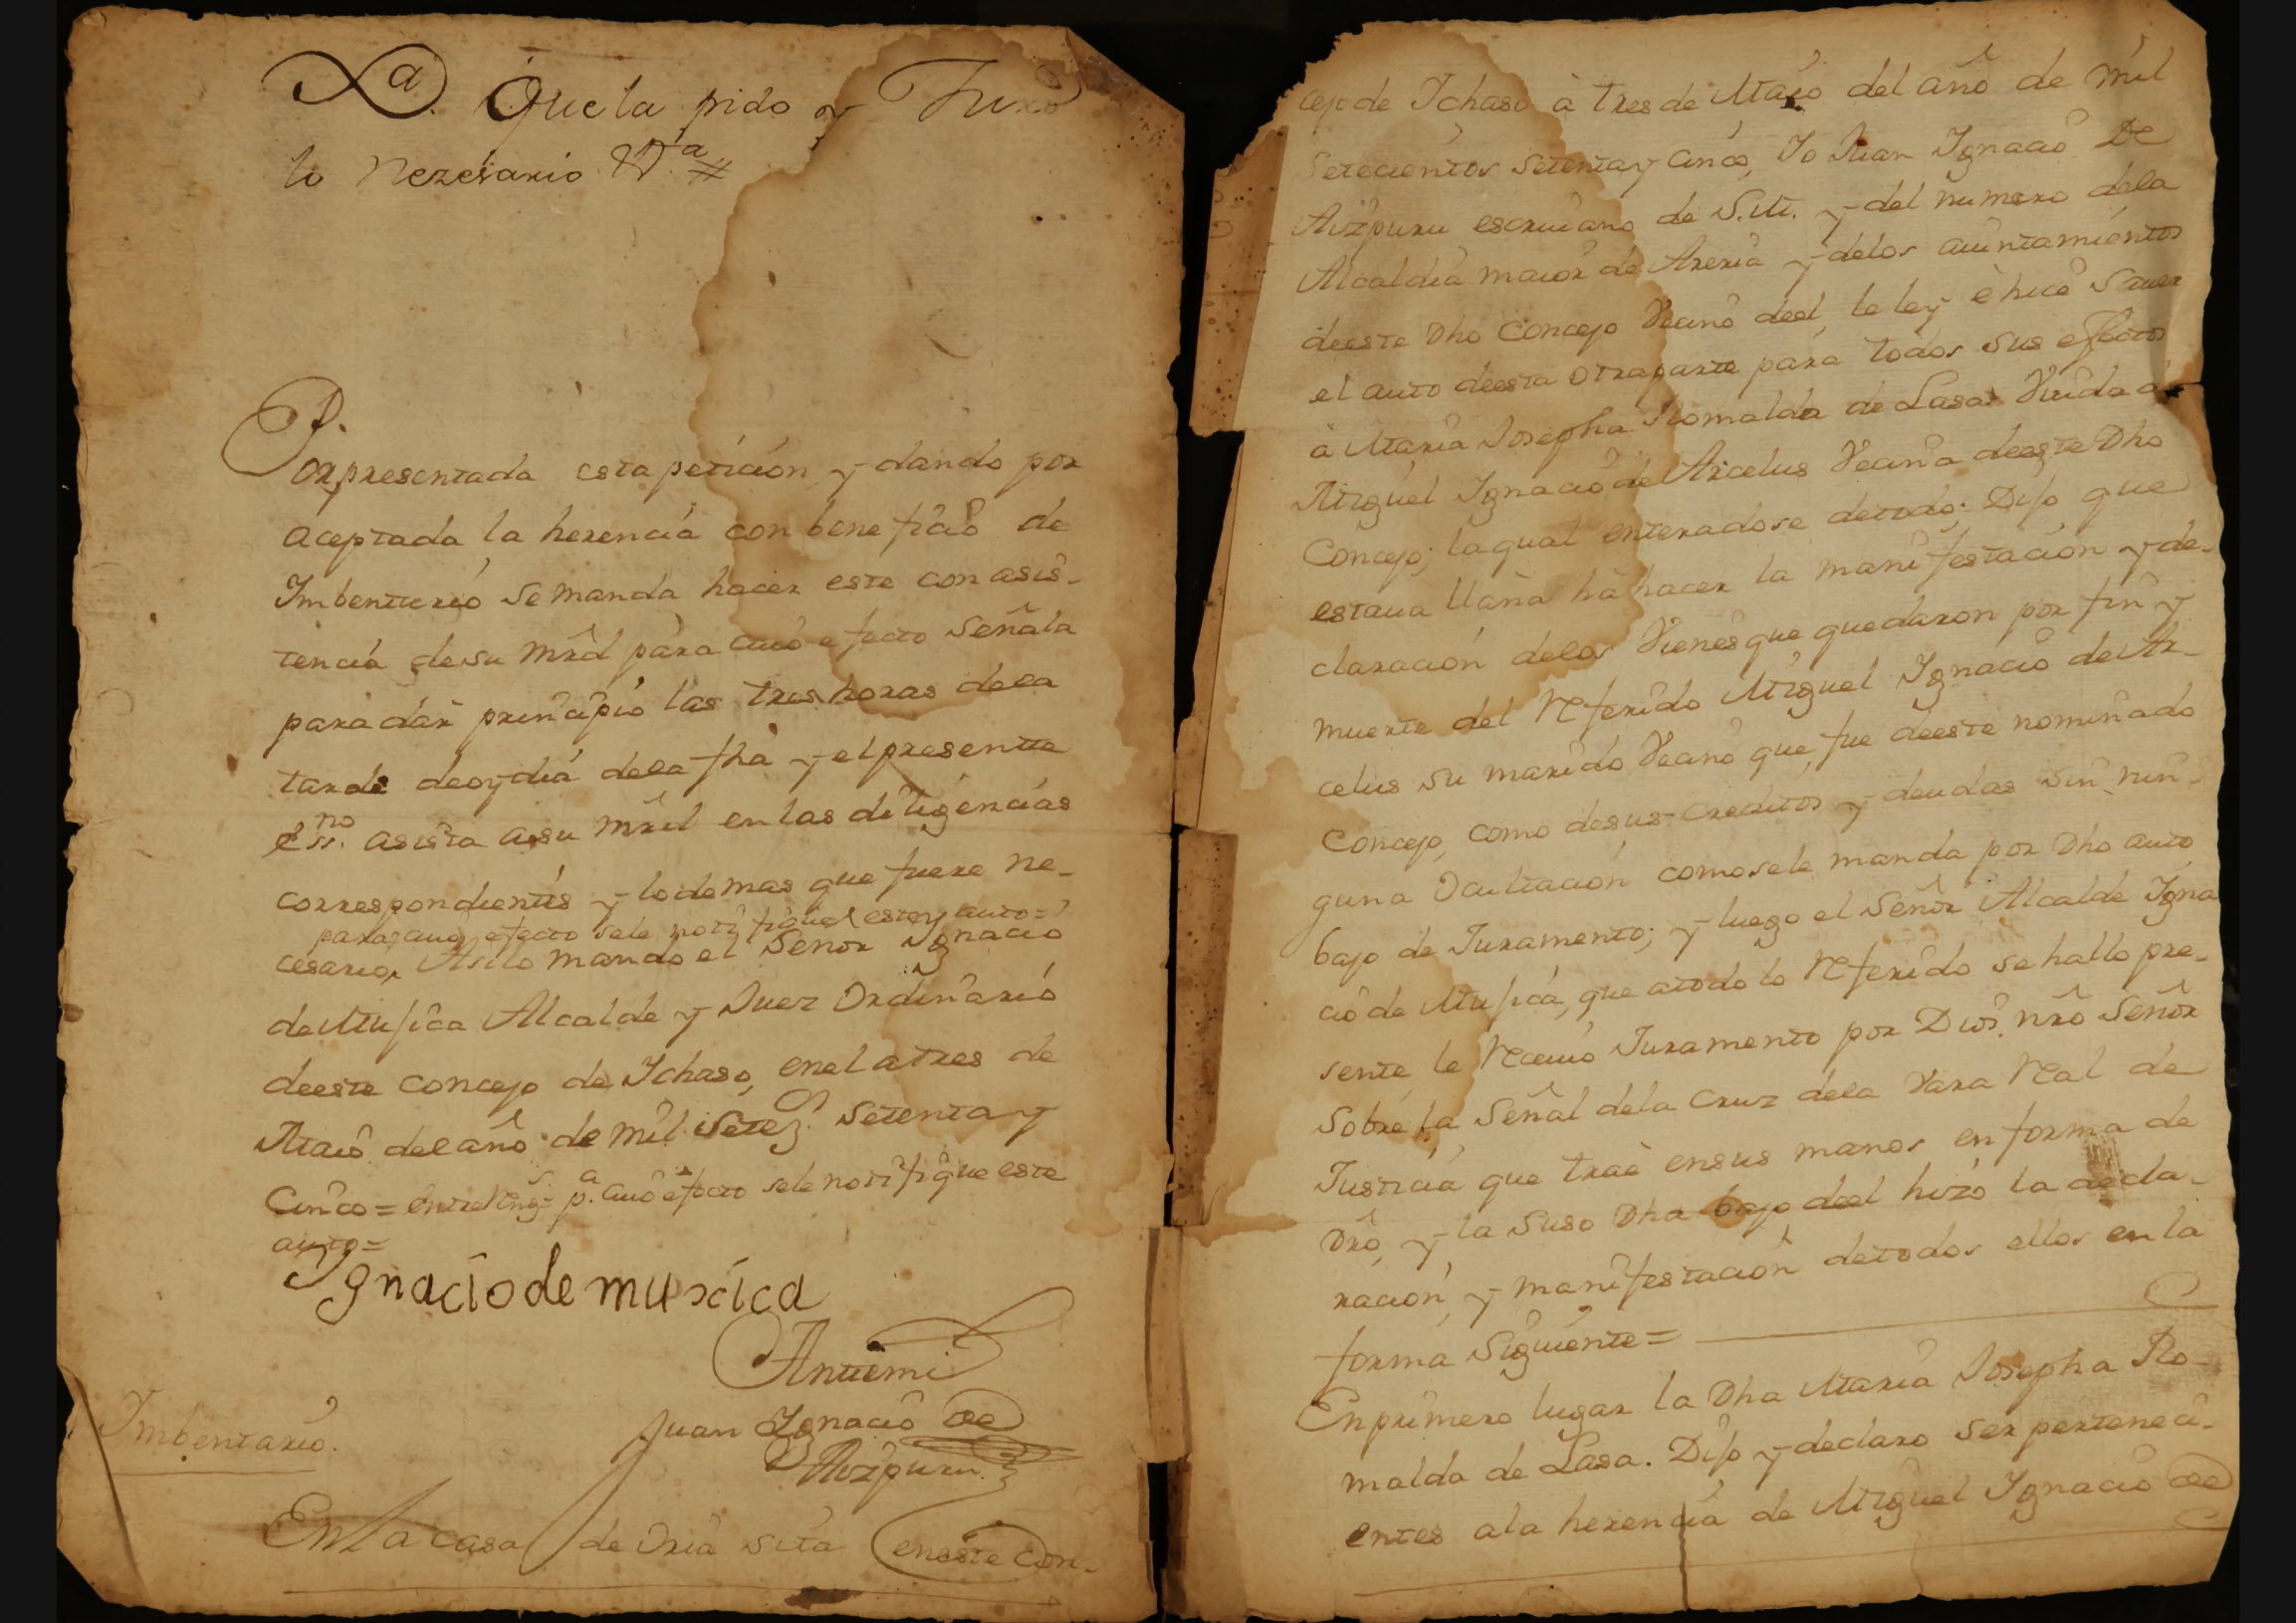 Que la pido y Juro
lo Nezesario &ª
Por presentada esta petición, y dando por
aceptada la herencia con beneficio de
Imbentario se manda hacer este con asis-
tencia de su mrd para cuio efecto Señala
para dar principio las tres horas de la
tarde de oy dia de la fha y el presente
essno. asista a su mrd en las diligencias
correspondientes y lo demas que fuere ne-
para cuio efecto se le notifique este auto=
cesario, Asi lo mando el Señor Ignacio
de Mujica Alcalde y Juez Ordinario
de este concejo de Ichaso, en el a tres de
Maio del año de mil setez.s setenta y
Cinco= entre Reng.s p.a cuio efecto se le notifique este
auto=
Ignacio de muxica
Ante mi
Juan Ignacio de
Aizpuru
Imbentario.
En la casa de Oria sita en este con-
cejo de Ichaso à tres de Maio del año de mil
setecientos setenta y cinco, Yo Juan Ignacio De
Aizpuru escriuano de S.M. y del numero de la
Alcaldia maior de Areria y de los aiuntamientos
de este Dho Concejo Vecino de el, le ley è hice sauer
el auto de esta otra parte para todos sus efectos
à Maria Josepha Romalda de Lasa Viuda de
Miguel Ignacio de Arcelus Vecina de este Dho
Concejo; la qual enteradose de todo; Dijo que
estaua llana hà hacer la manifestación y de-
claración de los Vienes que quedaron por fin y
muerte del Referido Miguel Ignacio de Ar-
celus su marido Vecino que fue de este nominado
Concejo, como de sus creditos y deudas sin nin-
guna Ocultación como se le manda por Dho auto
bajo de Juramento; y luego el Señor Alcalde Igna
cio de Mujica, que a todo lo Referido se hallo pre-
sente le Reciuio Juramento por Dios nro Señor
sobre la Señal de la Cruz de la Vara Real de
Justicia que traè en sus manos en forma de
Dro, y la suso Dha bajo de el hizo la decla-
ración, y manifestación de todos ellos en la
forma siguiente=
En primero lugar la Dha Maria Josepha Ro-
malda de Lasa. Dijo y declaro ser perteneci-
entes a la herencia de Miguel Ignacio de